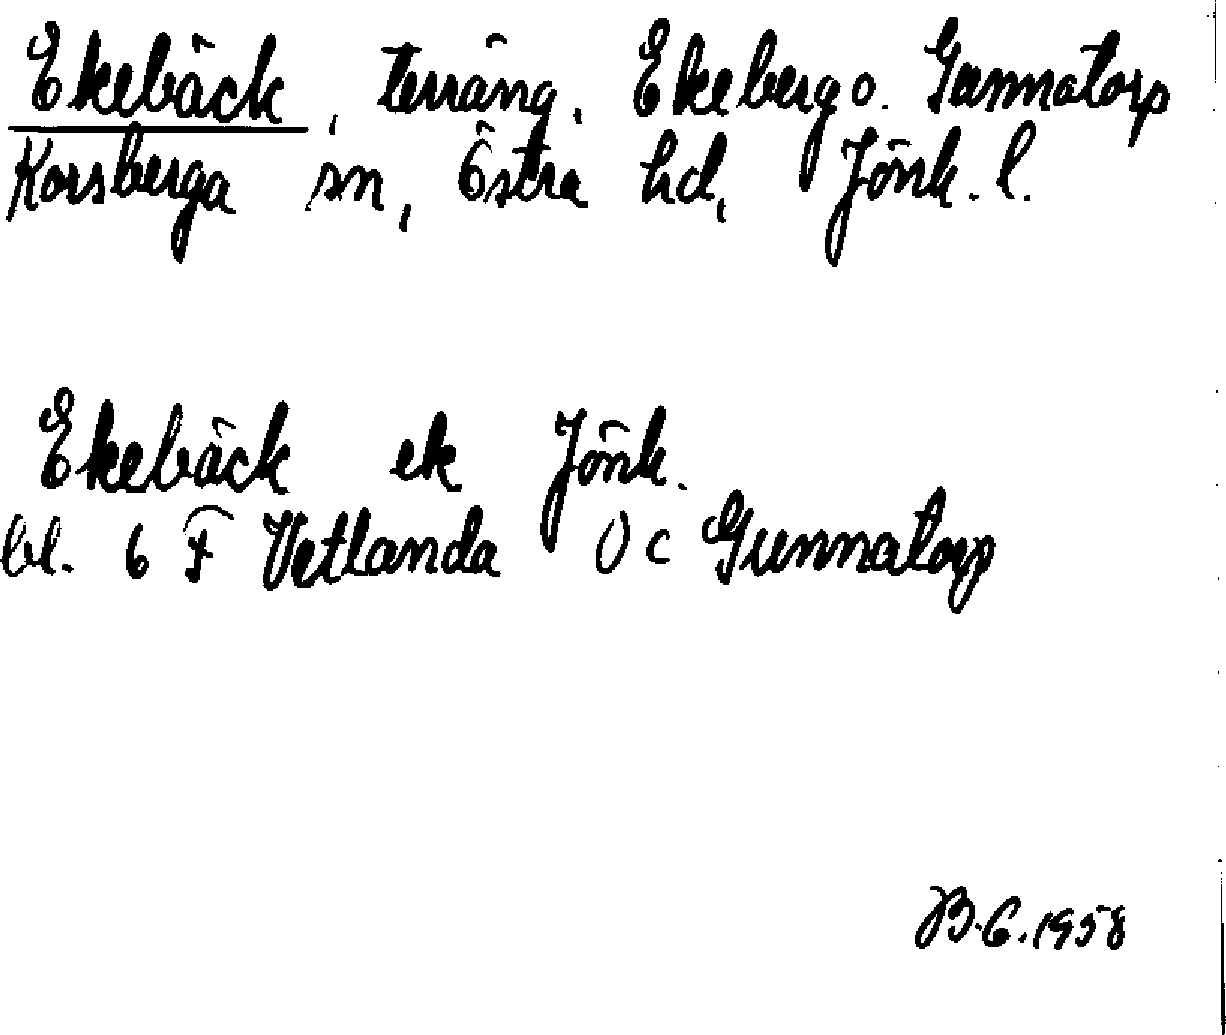 Ekebäck, terräng. Ekeberg o. Gunnatorp
Korsberga sn, Östra hd, Jönk. l.
Ekebäck ek Jönk.
bl. 6 F Vetlanda 0c Gunnatorp
B.G. 1958